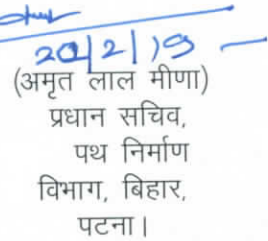 20/2/19
(अमृत लाल मीणा)
प्रधान सचिव,
पथ निर्माण
विभाग, बिहार,
पटना।